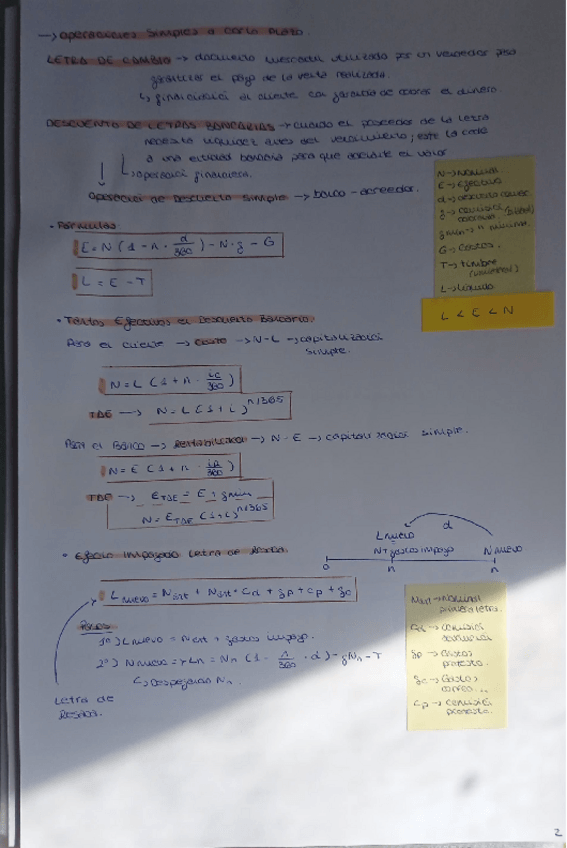 → operaciones simples a corto plazo.
LETRA DE CAMBIO → documento mercantil utilizado por un vendedor para
garantizar el pago de la venta realizada.
↳ financiación al cliente con garantía de cobrar el dinero.
DESCUENTO DE LETRAS BANCARIAS → cuando el poseedor de la letra
necesita liquidez antes del vencimiento, este la cede
a una entidad bancaria para que adelante el valor
↳ operación financiera.
Operación de Descuento Simple → banco - acreedor.
N → Nominal
E → Efectivo
d → descuento comer.
g → comisión
gmin → g mínima.
G → Gastos.
T → timbre
L → Líquido
L < E < N
• Fórmulas
E = N (1 - n · d/360) - N · g - G
L = E - T
• Tantos Efectivos el Descuento Bancario.
Para el cliente → Coste → N - L → capitalización
simple.
N = L (1 + n · ic/360)
TAE → N = L (1 + i)^n/365
Para el Banco → Rentabilidad → N - E → capitalización simple.
N = E (1 + n · iR/360)
TAE → E_TAE = E + gmin
N = E_TAE (1 + i)^n/365
• Efecto impagado Letra de Resaca.
d
L nuevo
N + gastos impago
N nuevo
0 n n
L nuevo = N ant + N ant · Cd + gp + Cp + gc
Pasos
1º) L nuevo = N ant + gastos impago.
2º) N nuevo → Ln = Nn (1 - n/360 · d) - gNn - T
↳ Despejando Nn.
Letra de
Resaca.
Nant → Nominal
primera letra.
Cd → Comisión
devolución
gp → Gastos
protesto.
gc → Gastos
correo ...
Cp → Comisión
protesto.
2